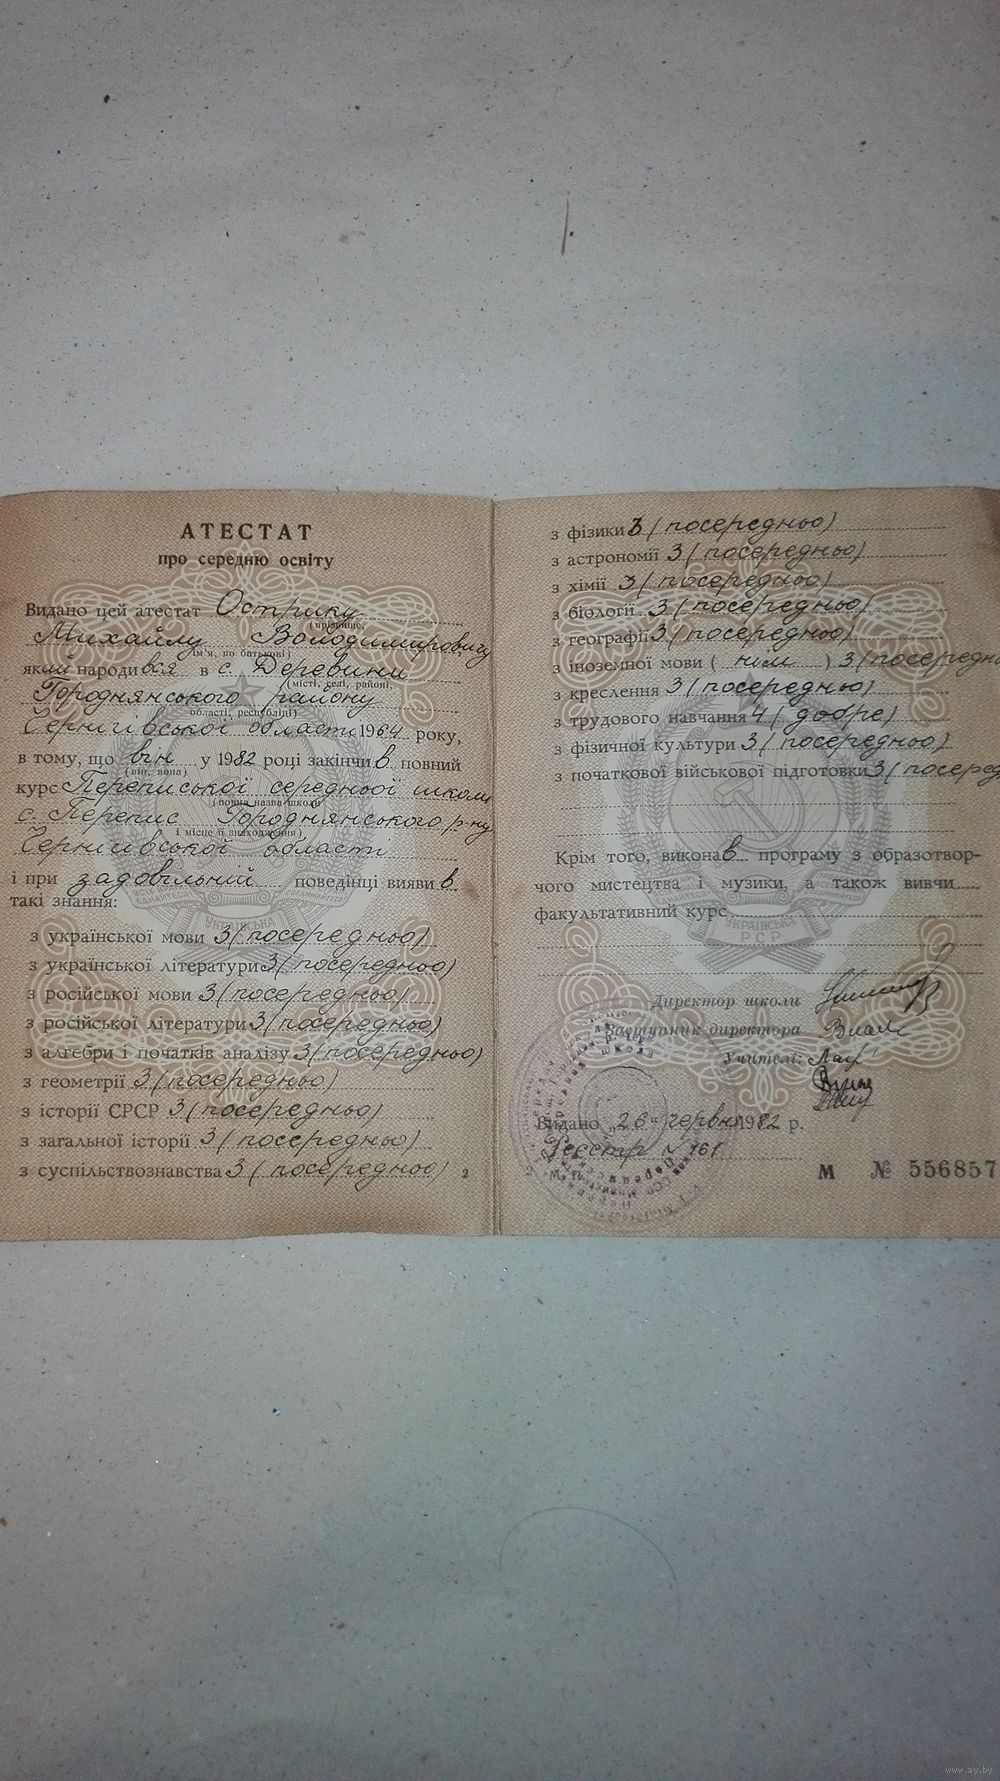 АТЕСТАТ
про середню освіту
Видано цей атестат Острику
(прізвище,
Михайлу Володимировичу
ім'я, по батькові)
який народився в с. Деревини
(місті, селі, районі,
Городнянського району
області, республіці)
Чернігівської області 1964 року,
в тому, що він у 1982 році закінчив повний
(він, вона)
курс Переписької середньої школи
(повна назва школи
с. Перепис Городнянського р-ну
і місце її знаходження)
Чернігівської області
і при задовільний поведінці виявив
такі знання:
з української мови 3 (посередньо)
з української літератури 3 (посередньо)
з російської мови 3 (посередньо)
з російської літератури 3 (посередньо)
з алгебри і початків аналізу 3 (посередньо)
з геометрії 3 (посередньо)
з історії СРСР 3 (посередньо)
з загальної історії 3 (посередньо)
з суспільствознавства 3 (посередньо)
2
з фізики 3 (посередньо)
з астрономії 3 (посередньо)
з хімії 3 (посередньо)
з біології 3 (посередньо)
з географії 3 (посередньо)
з іноземної мови (нім) 3 (посередньо
з креслення 3 (посередньо)
з трудового навчання 4 (добре)
з фізичної культури 3 (посередньо)
з початкової військової підготовки 3 (посеред
Крім того, виконав програму з образотвор-
чого мистецтва і музики, а також вивчи
факультативний курс
УКРАЇНСЬКА
РСР
Директор школи
Заступник директора
Учителі:
Видано „26" червня 1982 р.
Реєстр № 161
М № 556857
www.ay.by